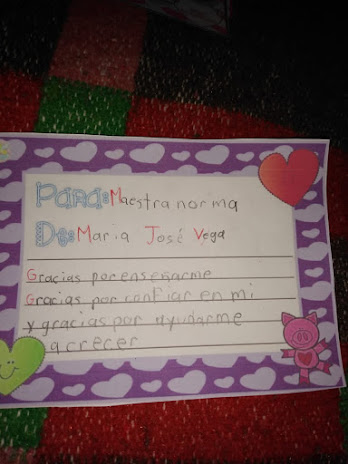 Para: Maestra norma
De: Maria José Vega
Gracias por enseñarme
Gracias por confiar en mi
y gracias por ayudarme
a crecer